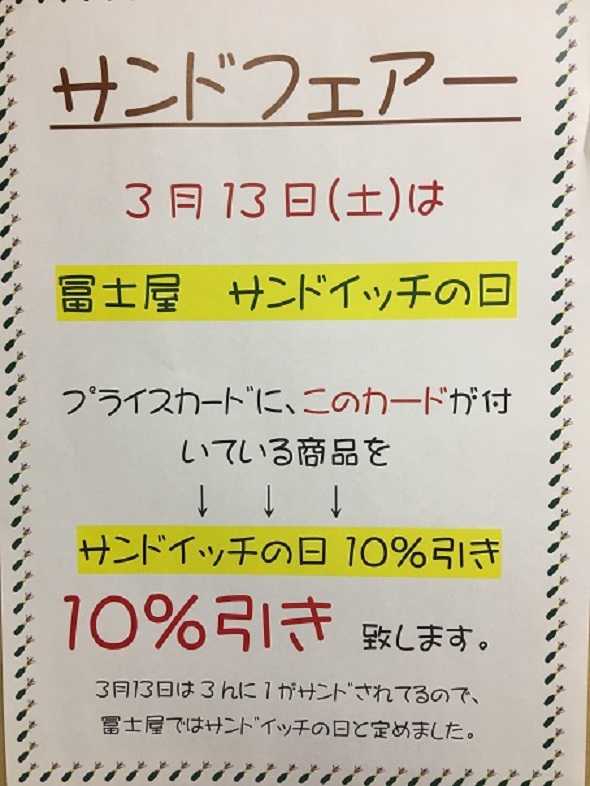 サンドフェアー
3月13日(土)は
冨士屋　サンドイッチの日
プライスカードに、このカードが付
いている商品を
↓ ↓ ↓
サンドイッチの日 10%引き
10%引き 致します。
3月13日は3んに1がサンドされてるので、
冨士屋ではサンドイッチの日と定めました。